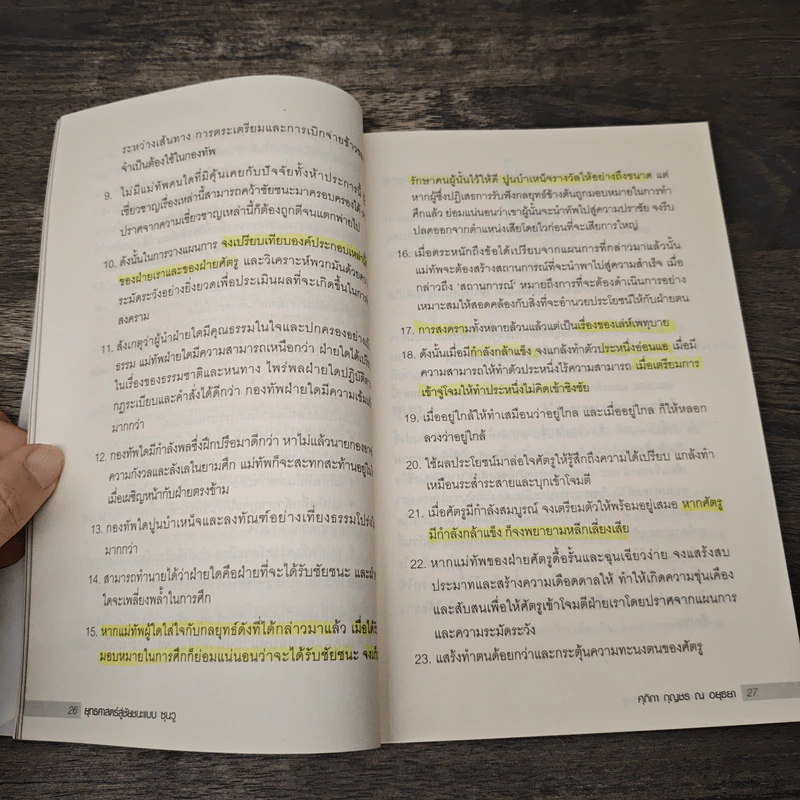 ระหว่างเส้นทาง การตระเตรียมและการเบิกจ่าย
จำเป็นต้องใช้ในกองทัพ
9. ไม่มีแม่ทัพคนใดที่มิคุ้นเคยกับปัจจัยทั้งห้าประการนี้
เชี่ยวชาญเรื่องเหล่านี้สามารถคว้าชัยชนะมาครอบครองได้
ปราศจากความเชี่ยวชาญเหล่านี้ก็ต้องถูกตีจนแตกพ่ายไป
10. ดังนั้นในการวางแผนการ จงเปรียบเทียบองค์ประกอบเหล่านี้
ของฝ่ายเราและของฝ่ายศัตรู และวิเคราะห์พวกมันด้วย
ระมัดระวังอย่างยิ่งยวดเพื่อประเมินผลที่จะเกิดขึ้นในการ
สงคราม
11. สังเกตุว่าผู้นำฝ่ายใดมีคุณธรรมในใจและปกครองอย่าง
ธรรม แม่ทัพฝ่ายใดมีความสามารถเหนือกว่า ฝ่ายใดได้
ในเรื่องของธรรมชาติและหนทาง ไพร่พลฝ่ายใดปฏิบัติ
กฎระเบียบและคำสั่งได้ดีกว่า กองทัพฝ่ายใดมีความเข้ม
มากกว่า
12. กองทัพใดมีกำลังพลซึ่งฝึกปรือมาดีกว่า หาไม่แล้วนายกอง
ความกังวลและลังเลในยามศึก แม่ทัพก็จะสะทกสะท้านอยู่
เมื่อเผชิญหน้ากับฝ่ายตรงข้าม
13. กองทัพใดปูนบำเหน็จและลงทัณฑ์อย่างเที่ยงธรรมโปร่ง
มากกว่า
14. สามารถทำนายได้ว่าฝ่ายใดคือฝ่ายที่จะได้รับชัยชนะ และ
ใดจะเพลี่ยงพล้ำในการศึก
15. หากแม่ทัพผู้ใดใส่ใจกับกลยุทธ์ดังที่ได้กล่าวมาแล้ว เมื่อได้
มอบหมายในการศึกก็ย่อมแน่นอนว่าจะได้รับชัยชนะ
26 ยุทธศาสตร์สู่ชัยชนะแบบ ซุนวู
รักษาคนผู้นั้นไว้ให้ดี ปูนบำเหน็จรางวัลให้อย่างถึงขนาด แต่
หากผู้ซึ่งปฏิเสธการรับฟังกลยุทธ์ข้างต้นถูกมอบหมายในการทำ
ศึกแล้ว ย่อมแน่นอนว่าเขาผู้นั้นจะนำทัพไปสู่ความปราชัย จงรีบ
ปลดออกจากตำแหน่งเสียโดยไวก่อนที่จะเสียการใหญ่
16. เมื่อตระหนักถึงข้อได้เปรียบจากแผนการที่กล่าวมาแล้วนั้น
แม่ทัพจะต้องสร้างสถานการณ์ที่จะนำพาไปสู่ความสำเร็จ เมื่อ
กล่าวถึง 'สถานการณ์' หมายถึงการที่จะต้องดำเนินการอย่าง
เหมาะสมให้สอดคล้องกับสิ่งที่จะอำนวยประโยชน์ให้กับฝ่ายตน
17. การสงครามทั้งหลายล้วนแล้วแต่เป็นเรื่องของเล่ห์เพทุบาย
18. ดังนั้นเมื่อมีกำลังกล้าแข็ง จงแกล้งทำตัวประหนึ่งอ่อนแอ เมื่อมี
ความสามารถให้ทำตัวประหนึ่งไร้ความสามารถ เมื่อเตรียมการ
เข้าจู่โจมให้ทำประหนึ่งไม่คิดเข้าชิงชัย
19. เมื่ออยู่ใกล้ให้ทำเสมือนว่าอยู่ไกล และเมื่ออยู่ไกล ก็ให้หลอก
ลวงว่าอยู่ใกล้
20. ใช้ผลประโยชน์มาล่อใจศัตรูให้รู้สึกถึงความได้เปรียบ แกล้งทำ
เหมือนระส่ำระสายและบุกเข้าโจมตี
21. เมื่อศัตรูมีกำลังสมบูรณ์ จงเตรียมตัวให้พร้อมอยู่เสมอ หากศัตรู
มีกำลังกล้าแข็ง ก็จงพยายามหลีกเลี่ยงเสีย
22. หากแม่ทัพของฝ่ายศัตรูดื้อรั้นและฉุนเฉียวง่าย จงแสร้งสบ
ประมาทและสร้างความเดือดดาลให้ ทำให้เกิดความขุ่นเคือง
และสับสนเพื่อให้ศัตรูเข้าโจมตีฝ่ายเราโดยปราศจากแผนการ
และความระมัดระวัง
23. แสร้งทำตนด้อยกว่าและกระตุ้นความทะนงตนของศัตรู
ศุภิกา กุญชร ณ อยุธยา 27